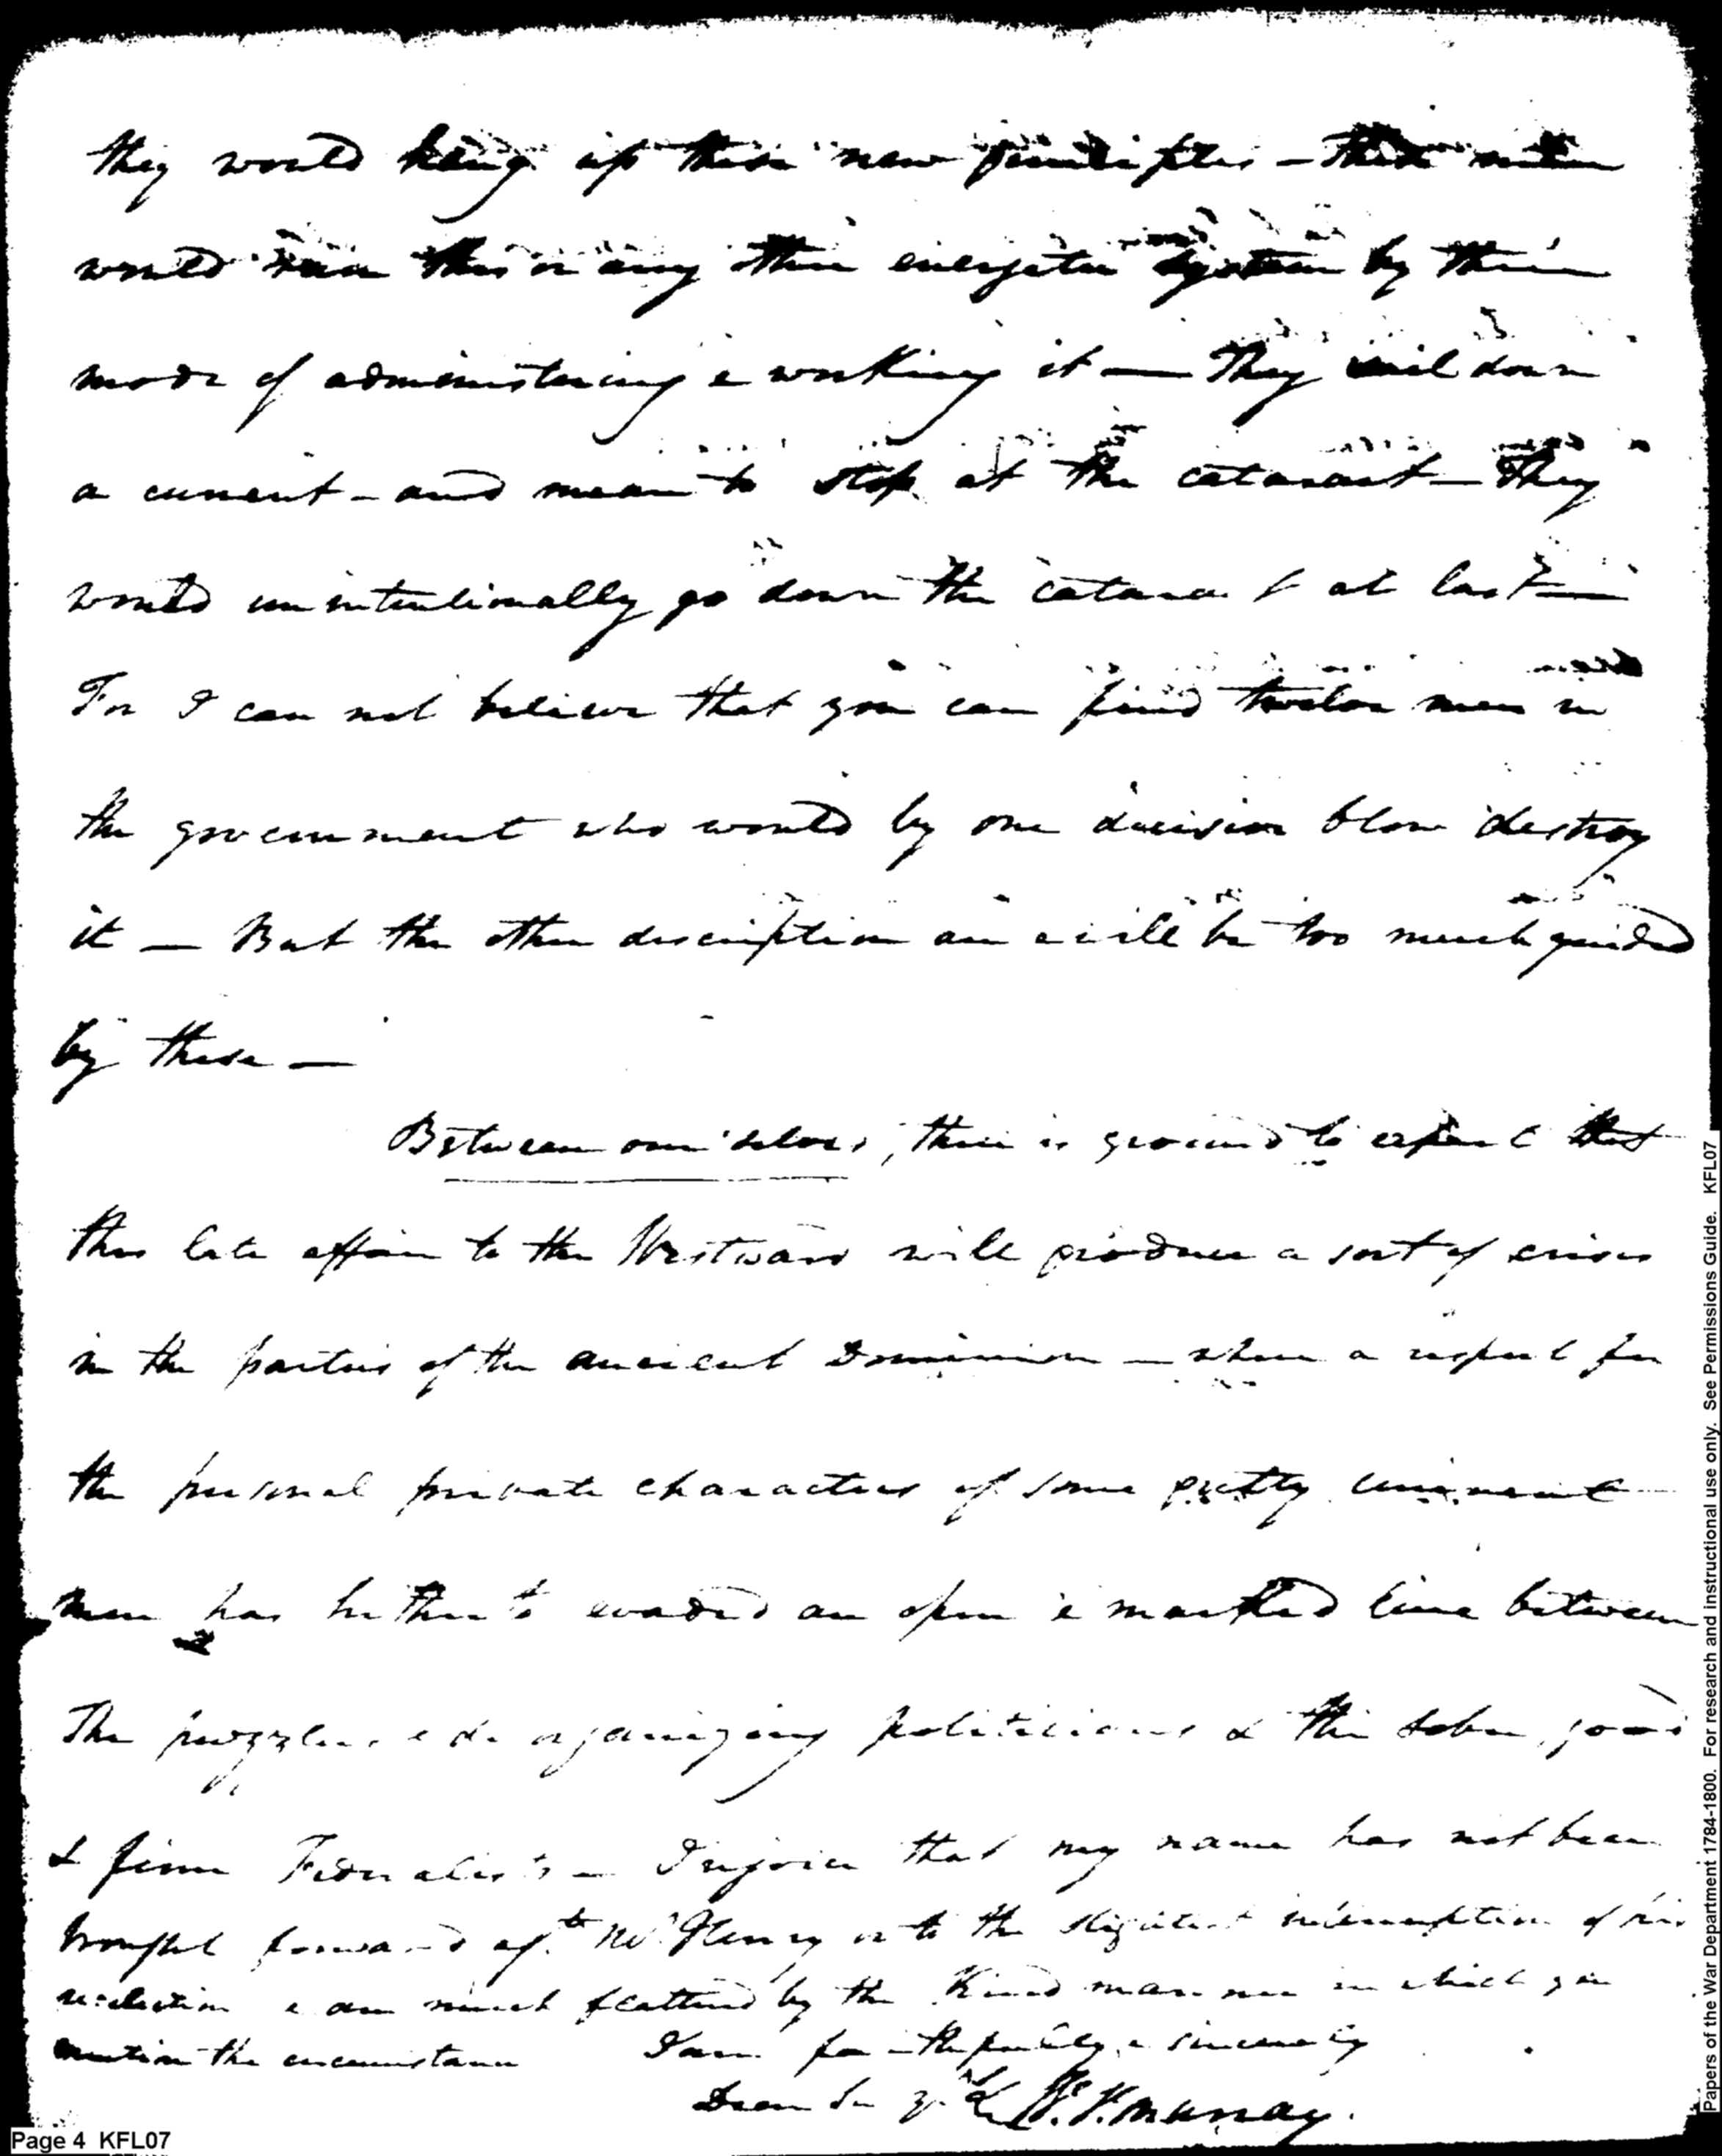 they would bring up these new principles - these men
would ruin this or any other energetic system by their
mode of administering & working it — They sail down
a current - and mean to stop at the cataract — They
would unintentionally go down the cataract at last —
For I can not believe that you can find twelve men in
the government who would by one decisive blow destroy
it — But the other description are & will be too much guided
by these —
Between ourselves, there is ground to expect that
this late affair to the Westward will produce a sort of crisis
in the parties of the ancient Dominion — where a respect for
the personal private characters of some pretty eminent
men has hitherto evaded an open & marked line between
The puzzlers & disorganizing politicians & the sober, good
& firm Federalists - I rejoice that my name has not been
brought forward agt. Mr Henry or to the slightest interruption of his
reelection & am much flattered by the Kind manner in which you
mention the circumstance I am faithfully & sincerely
Dear Sir yr. W. V. Murray.
Page 4 KFL07
Papers of the War Department 1784-1800. For research and instructional use only. See Permissions Guide. KFL07